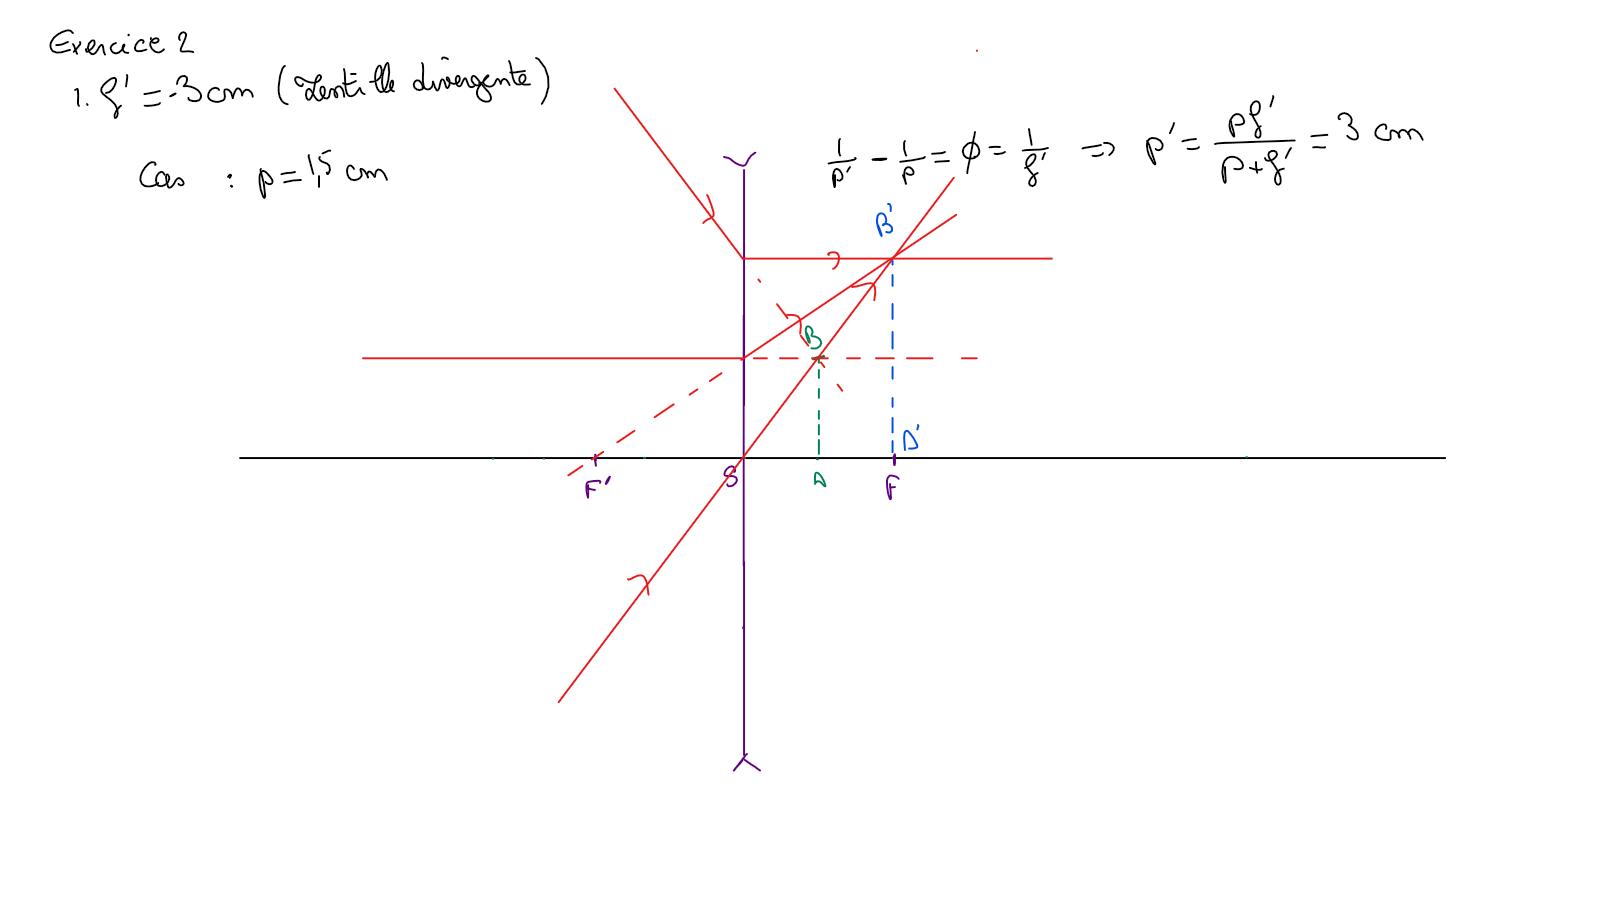 Exercice 2
1. f' = -3cm (Lentille divergente)
Cas : p = 1,5 cm
1/p' - 1/p = ϕ = 1/f' ⇒ p' = pf'/(p+f') = 3 cm
B'
B
A'
F' S A F